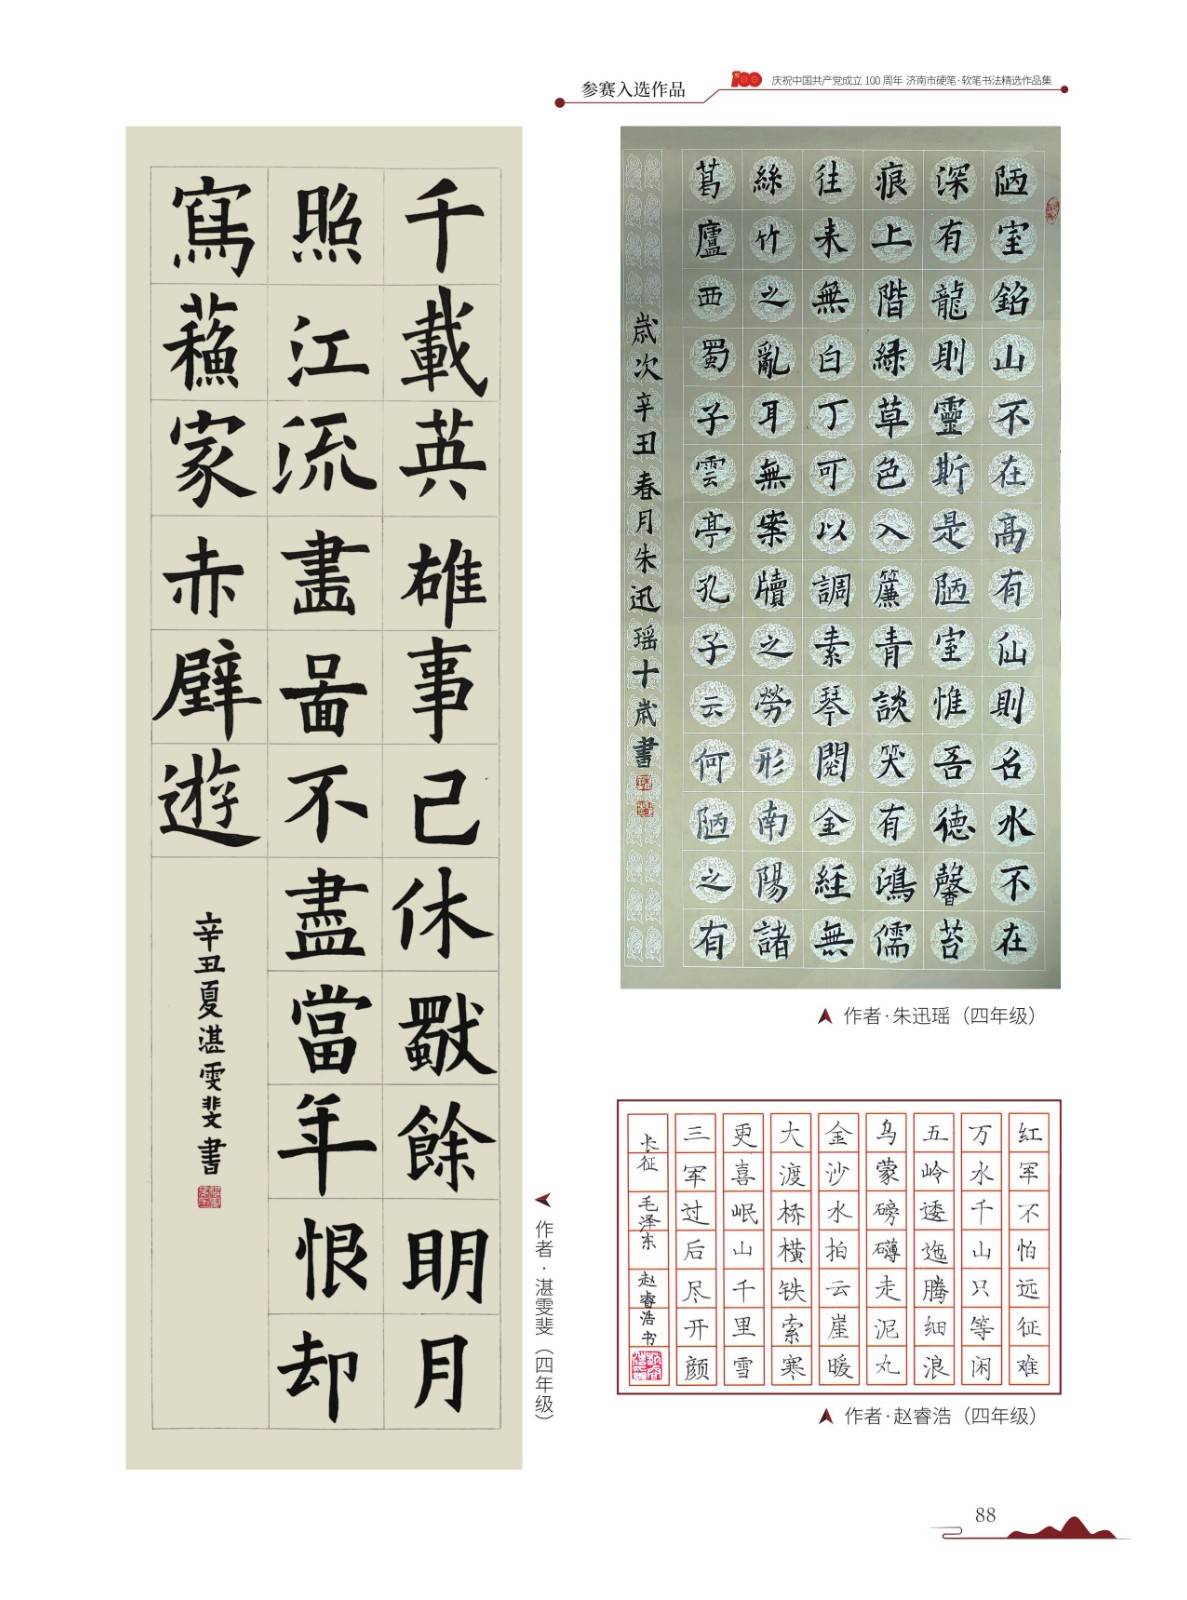 参赛入选作品
100 庆祝中国共产党成立 100 周年 济南市硬笔·软笔书法精选作品集
千載英雄事已休獨餘明月
照江流畫啚不盡當年恨却
寫蘓家赤壁遊
辛丑夏湛雯斐書
作者·湛雯斐（四年级）
陋室銘山不在高有仙則名水不在
深有龍則靈斯是陋室惟吾德馨苔
痕上階綠草色入簾青談笑有鴻儒
往来無白丁可以調素琴閱金経無
絲竹之亂耳無案牘之勞形南陽諸
葛廬西蜀子雲亭孔子云何陋之有
歲次辛丑春月朱迅瑶十歲書
作者·朱迅瑶（四年级）
红军不怕远征难
万水千山只等闲
五岭逶迤腾细浪
乌蒙磅礴走泥丸
金沙水拍云崖暖
大渡桥横铁索寒
更喜岷山千里雪
三军过后尽开颜
长征 毛泽东 赵睿浩书
作者·赵睿浩（四年级）
88